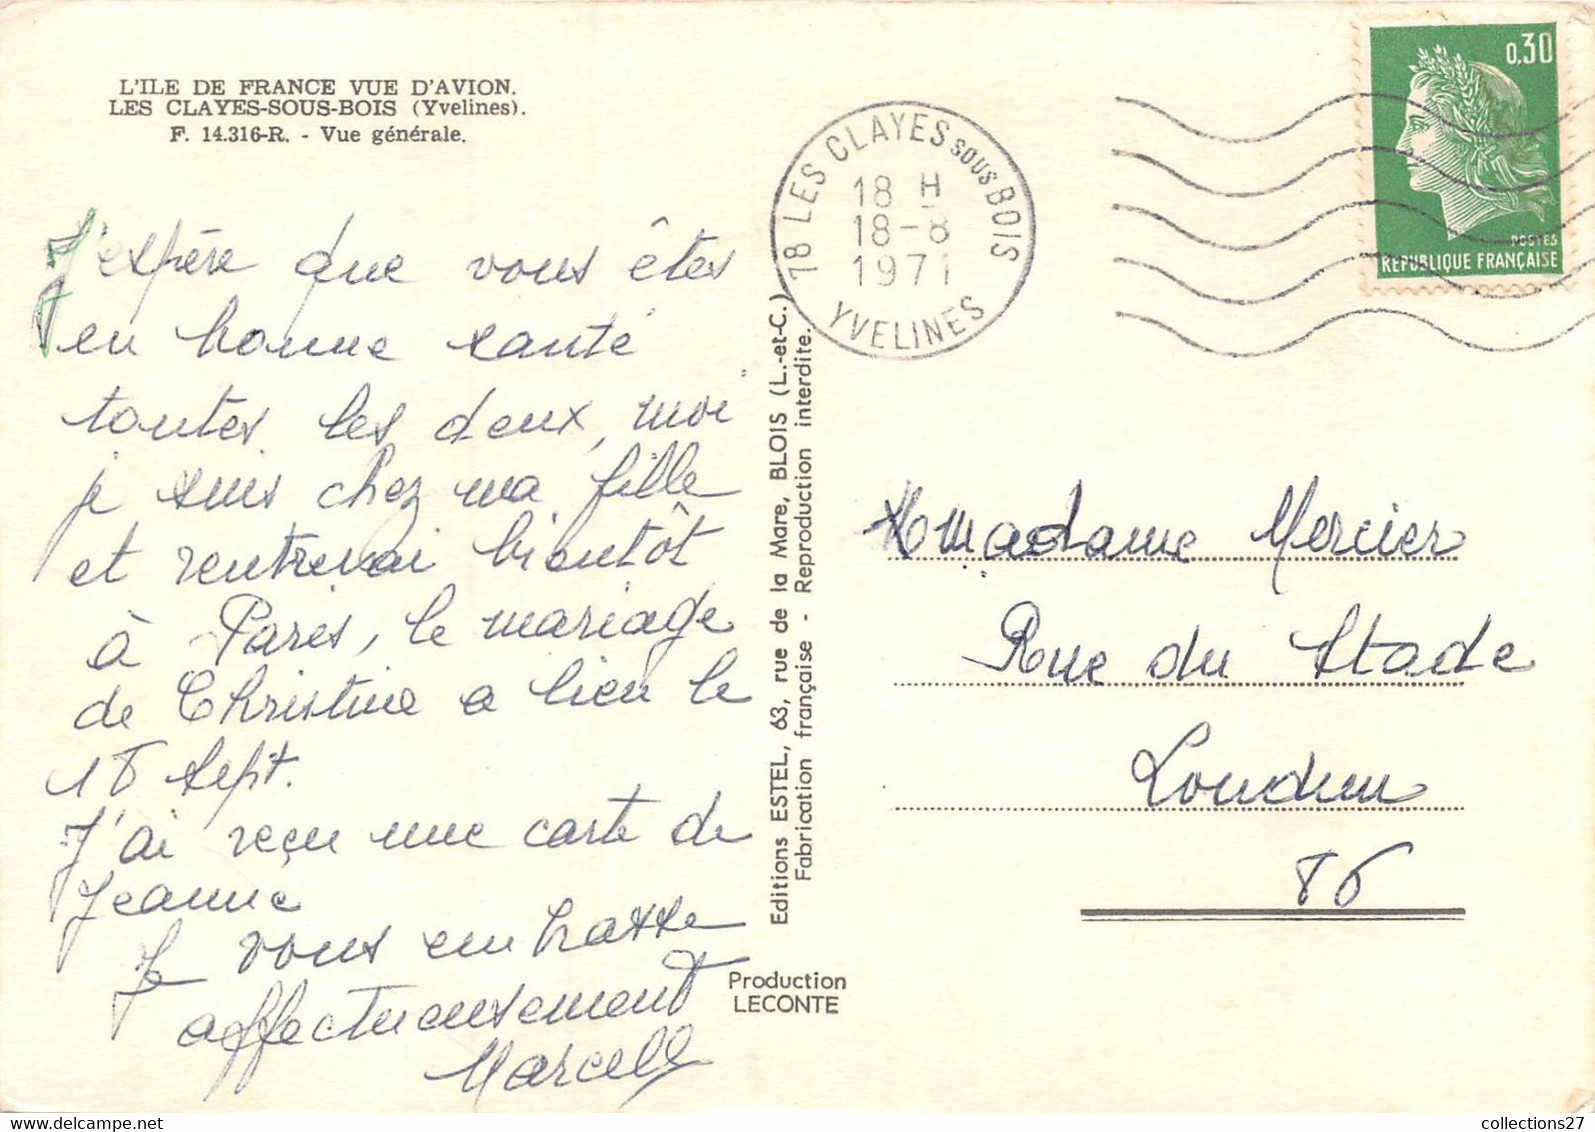 L'ILE DE FRANCE VUE D'AVION.
LES CLAYES-SOUS-BOIS (Yvelines).
F. 14.316-R. - Vue générale.
J'espère que vous êtes
en bonne santé
toutes les deux, moi
je suis chez ma fille
et rentrerai bientôt
à Paris, le mariage
de Christine a lieu le
18 Sept.
J'ai reçu une carte de
Jeanne
Je vous embrasse
affectueusement
Marcelle
Editions ESTEL, 63, rue de la Mare, BLOIS (L.-et-C.)
Fabrication française - Reproduction interdite.
Production
LECONTE
78 LES CLAYES SOUS BOIS
18 H
18-8
1971
YVELINES
0,30
POSTES
REPUBLIQUE FRANÇAISE
Madame Mercier
Rue du Stade
Loudun
86
collections27